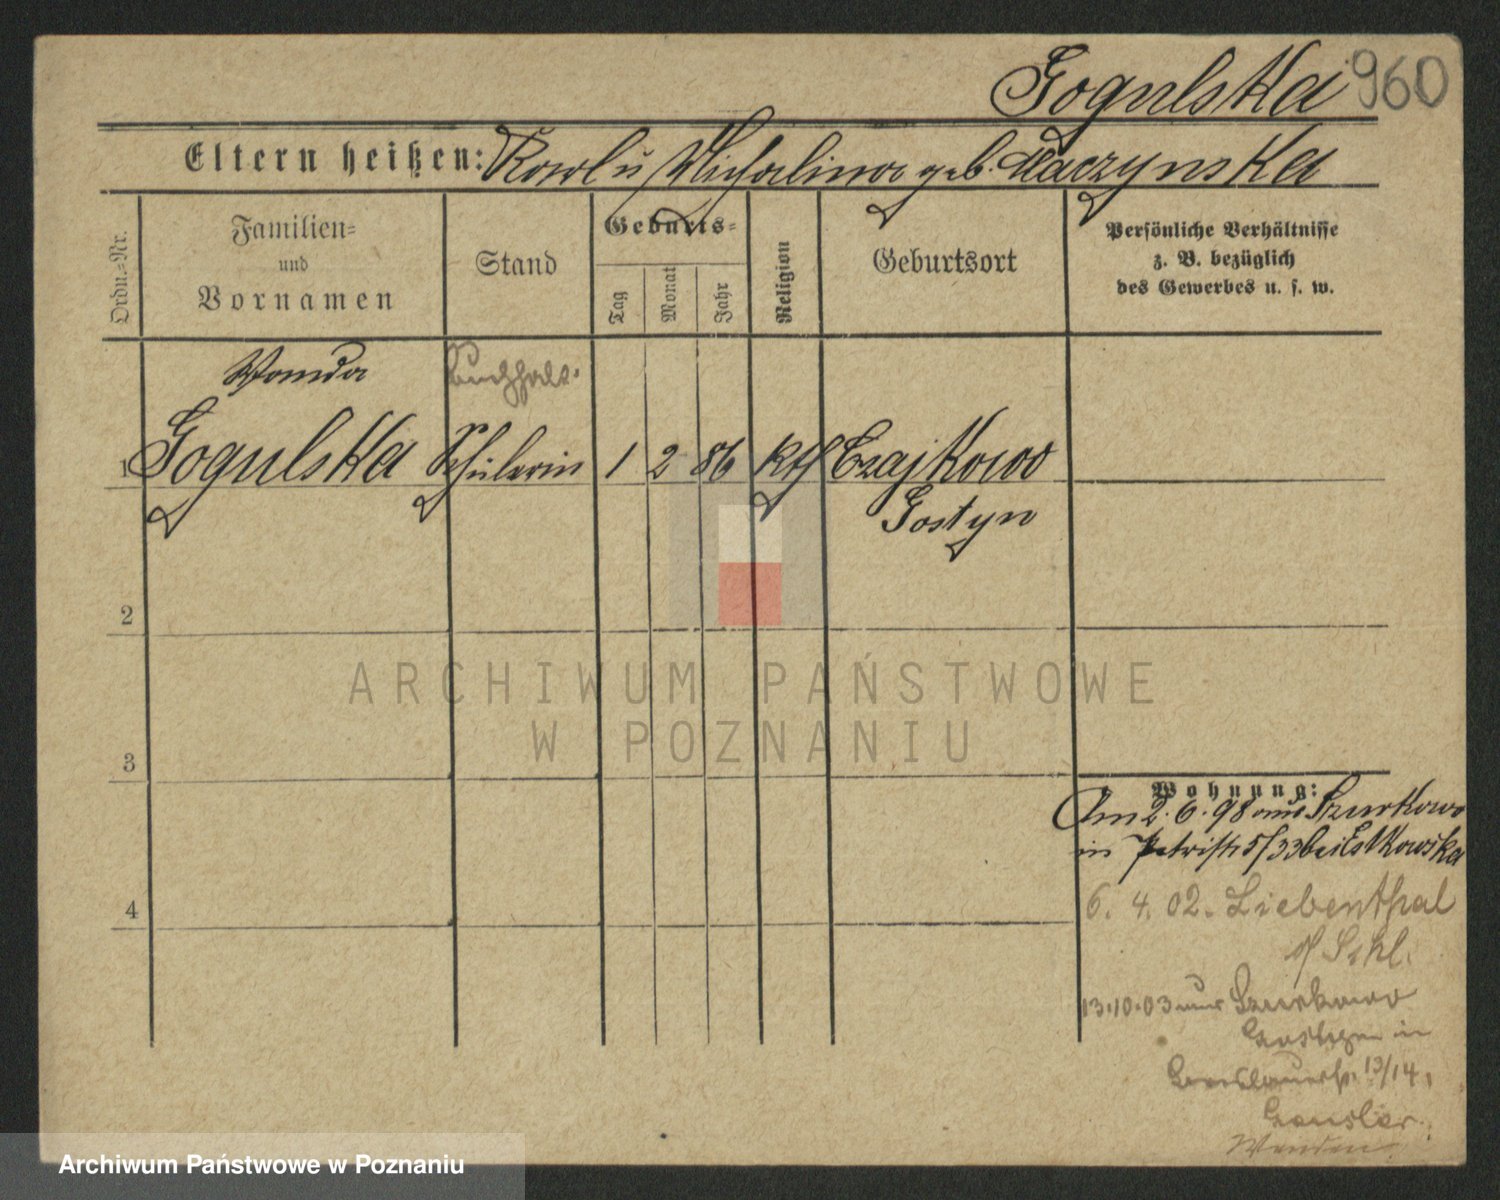 Gogulska 960
Eltern heißen: Karl u Michalina geb. Raczynska
Ordn.=Nr.
Familien=
und
Vornamen
Stand
Geburts=
Tag
Monat
Jahr
Religion
Geburtsort
Persönliche Verhältnisse
z. B. bezüglich
des Gewerbes u. s. w.
Wanda
Buchhalt.
1 Gogulska Schülerin 1 2 86 kth Czajkowo
Gostyn
2
ARCHIWUM PAŃSTWOWE
W POZNANIU
3
Wohnung:
Am 2. 6. 98 aus Szurkowo
in Petristr 5/33 bei Estkowska
4
6. 4. 02. Liebenthal
13.10.03 aus Szurkowo
Gostyn in
Breslauerstr. 13/14,
Wenden
Archiwum Państwowe w Poznaniu